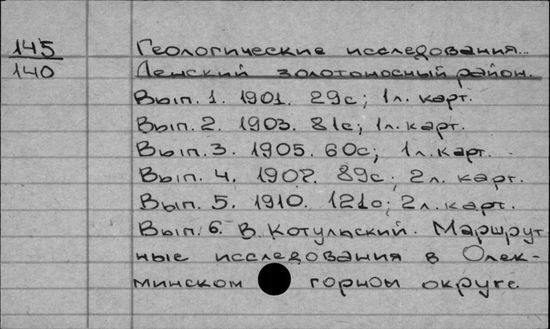 145 Геологические исследования...
140 Ленский золотоносный район.
Вып. 1. 1901. 29с; 1л. карт.
Вып. 2. 1903. 81с; 1л. карт.
Вып. 3. 1905. 60с; 1л. карт.
Вып. 4. 1907. 89с; 2л. карт.
Вып. 5. 1910. 121с; 2л. карт.
Вып. 6. В. Котульский. Маршрут-
ные исследования в Олек-
минском горном округе.